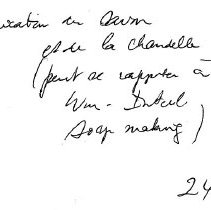 du Savon
et de la chandelle
(peut se rapporter à
Wm -
Soap making)
24